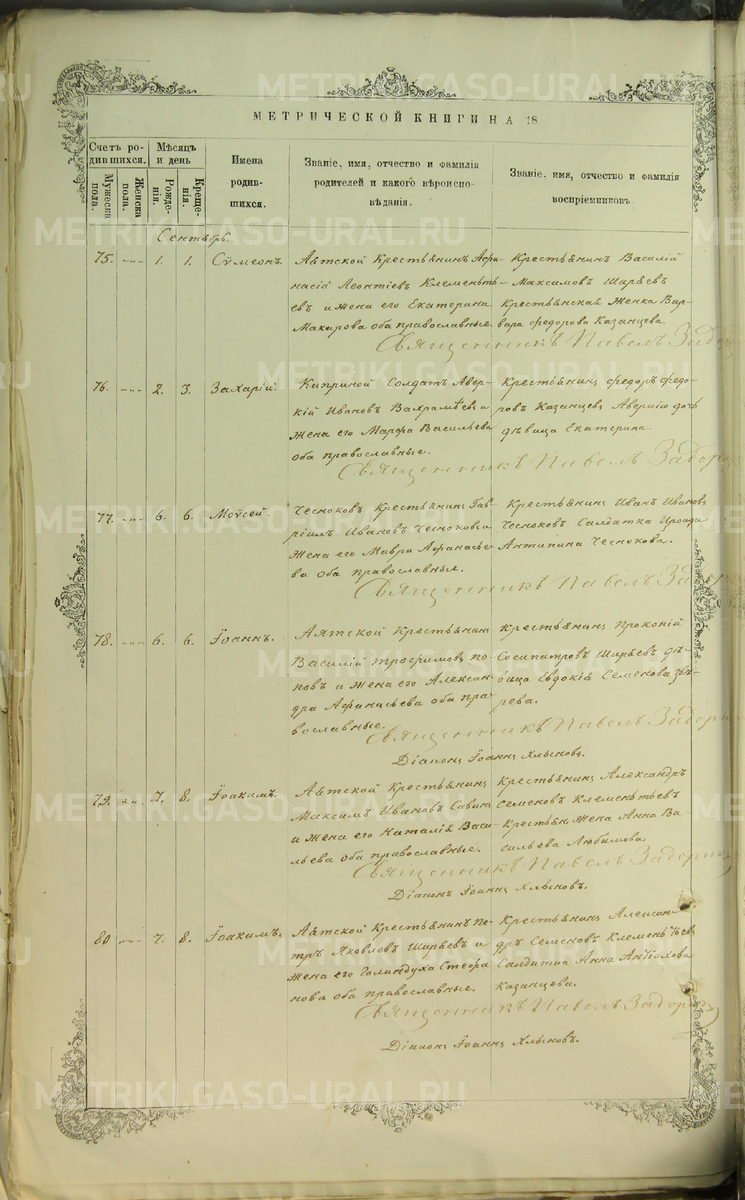 МЕТРИЧЕСКОЙ КНИГИ НА 18
Счетъ родившихся.
Мужеска пола.
Женска пола.
Мѣсяцъ и день
Рожденія.
Крещенія.
Имена родившихся.
Званіе, имя, отчество и фамилія родителей и какого вѣроисповѣданія.
Званіе, имя, отчество и фамилія воспріемниковъ.
Сентябрь.
75. 1. 1. Сѵмеонъ.
Аятской Крестьянинъ Афа-
насій Леонтіевъ Клеменьть-
евъ и жена его Екатерина
Макарова оба православные
Крестьянинъ Василій
Максимовъ Ширяевъ
Крестьянская Женка Вар-
вара Федорова Казанцева.
Священникъ Павелъ Задорин
76. 2. 3. Захарій.
Солдатъ Авер-
кій Ивановъ Вахрамѣевъ и
жена его Марфа Васильева
оба православные.
Крестьянинъ Федоръ Федо-
ровъ Казанцевъ Аверкію дочь
дѣвица Екатерина.
Священникъ Павелъ Задорин
77. 6. 6. Моѵсей.
Чесноковъ Крестьянинъ Гав-
ріилъ Ивановъ Чесноковъ и
жена его Мавра Афанасье-
ва оба православные.
Крестьянинъ Иванъ Ивановъ
Чесноковъ Солдатка Ироида
Антипина Чеснокова.
Священникъ Павелъ Задорин
78. 6. 6. Іоаннъ.
Аятской Крестьянинъ
Василій Трофимовъ По-
повъ и жена его Алексан-
дра Афанасьева оба пра-
вославные.
Крестьянинъ Прокопій
Сосипатровъ Ширьевъ дѣ-
вица Евдокія Семенова Звѣ-
рева.
Священникъ Павелъ Задорин
Діаконъ Іоаннъ Хлыновъ.
79. 7. 8. Іоакимъ.
Аятской Крестьянинъ
Максимъ Ивановъ Савинъ
и жена его Наталія Васи-
льева оба православные.
Крестьянинъ Александръ
Семеновъ Клеменьтьевъ
Крестьян. Жена Анна Ва-
сильева Любимова
Священникъ Павелъ Задорин
Діаконъ Іоаннъ Хлыновъ.
80 7. 8. Іоакимъ.
Аятской Крестьянинъ Пе-
тръ Яковлевъ Ширьевъ и
жена его Голиндуха Стефа-
нова оба православные.
Крестьянинъ Алексан-
дръ Семеновъ Клеменьтьевъ
Солдатка Анна Антіохова
Казанцева.
Священникъ Павелъ Задорин
Діаконъ Іоаннъ Хлыновъ.
METRIKI.GASO-URAL.RU